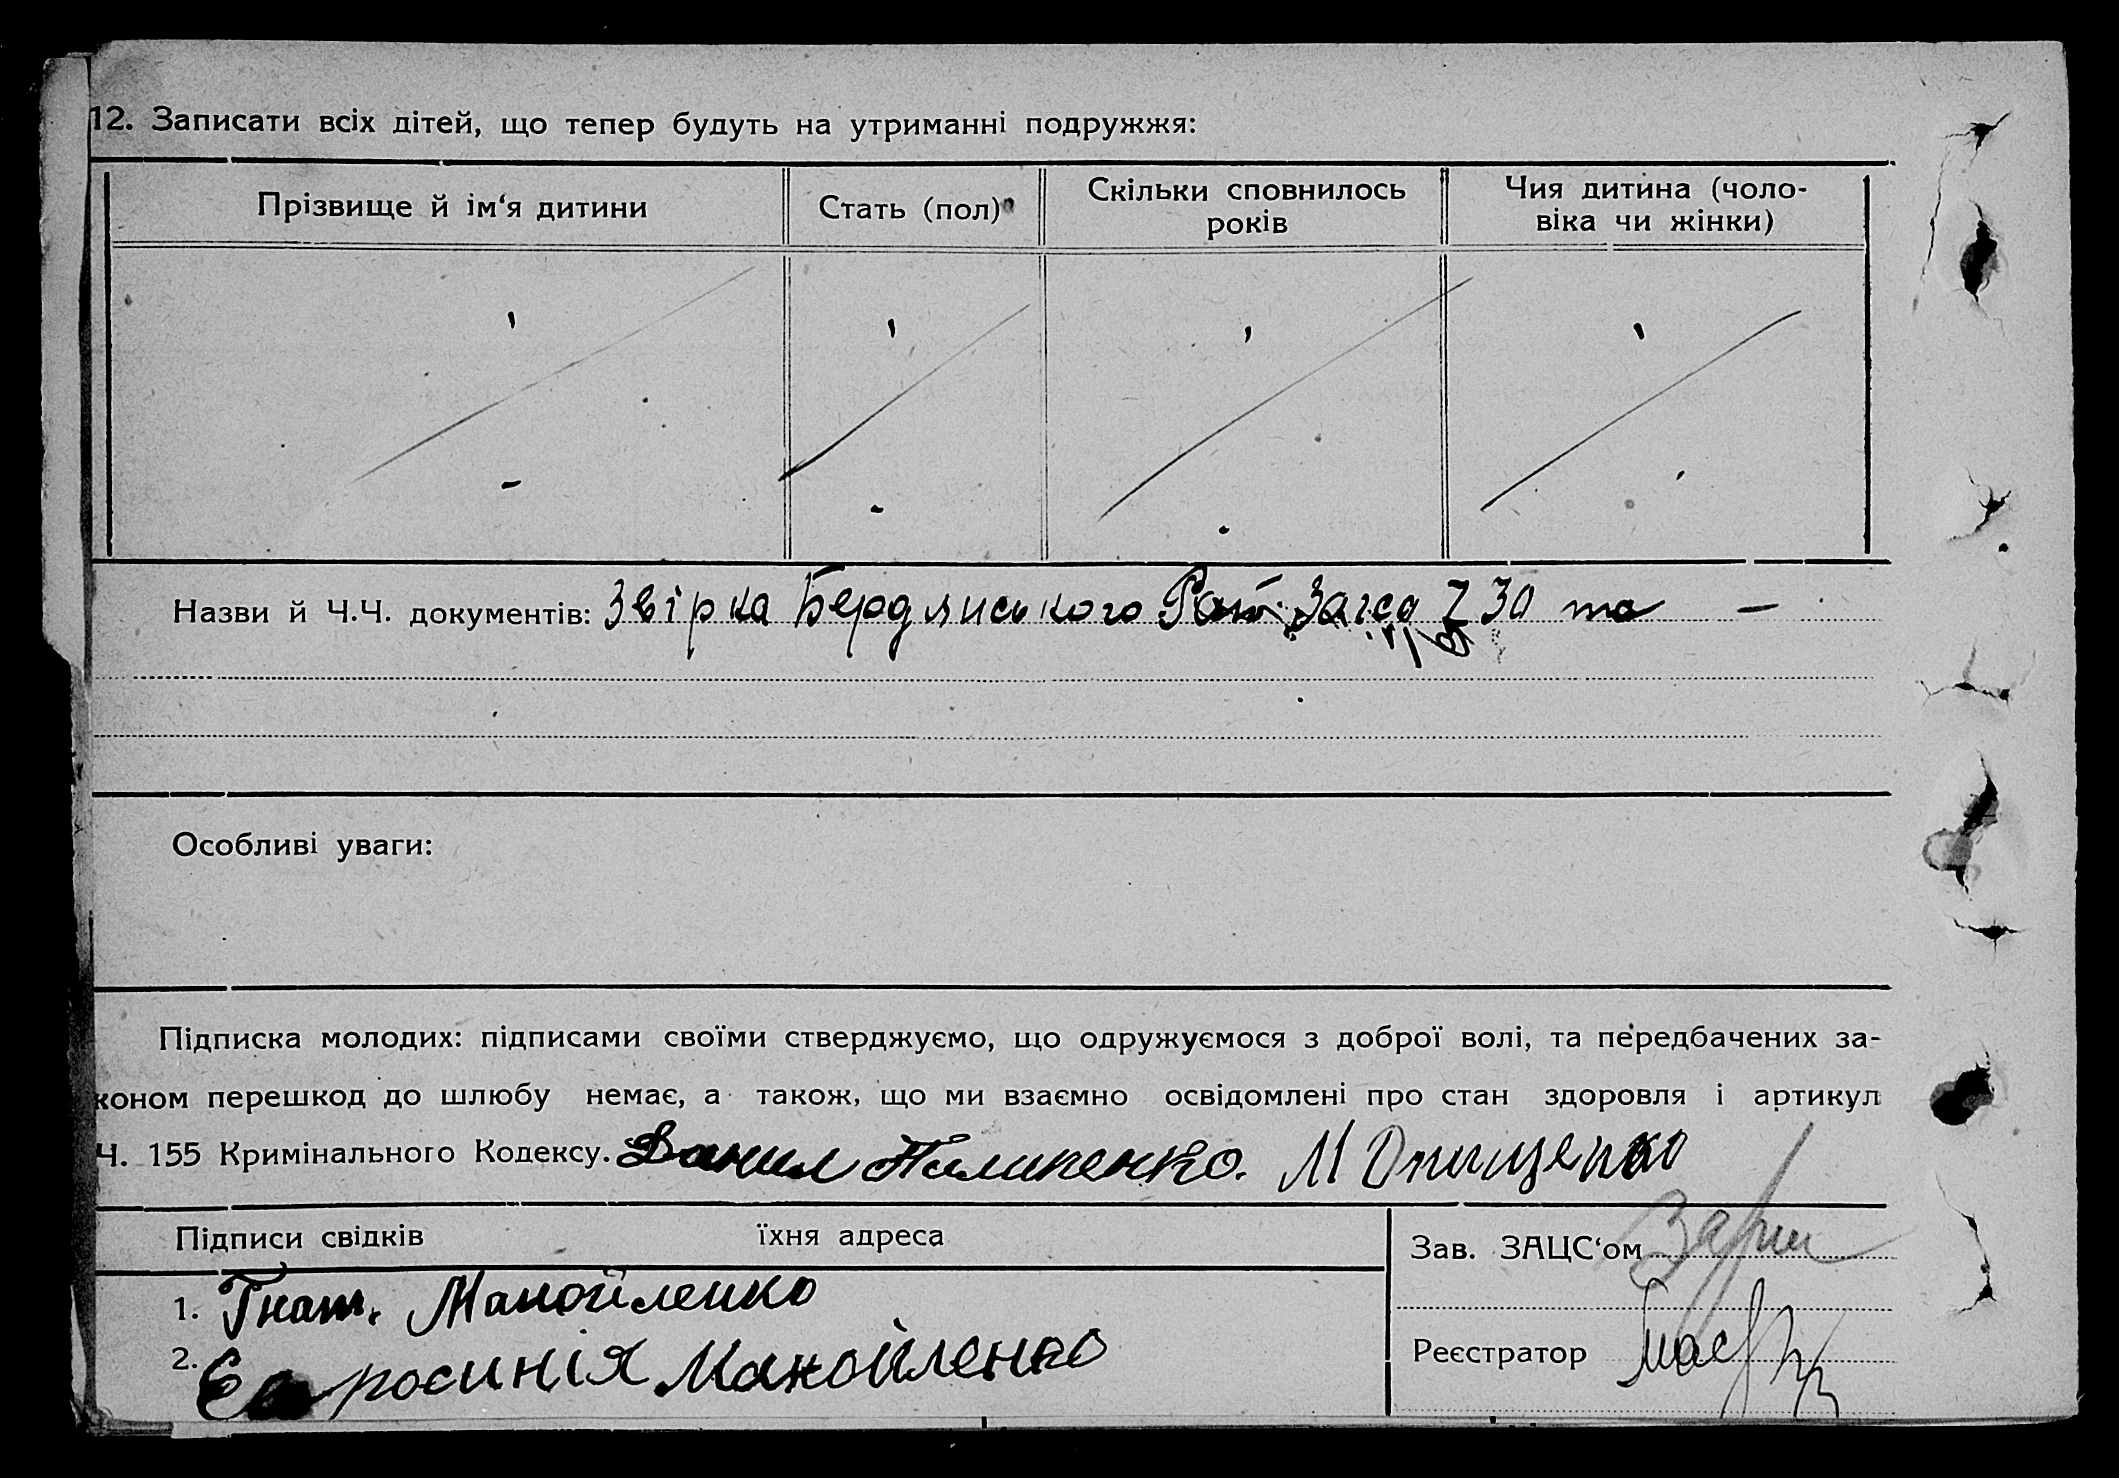 12. Записати всіх дітей, що тепер будуть на утриманні подружжя:
Прізвище й ім‘я дитини
Стать (пол)
Скільки сповнилось
років
Чия дитина (чоло-
віка чи жінки)
Назви й Ч.Ч. документів: Звірка Бердянського Рай. Загса 30 та —
Особливі уваги:
Підписка молодих: підписами своїми стверджуємо, що одружуємося з доброї волі, та передбачених за-
коном перешкод до шлюбу немає, а також, що ми взаємно освідомлені про стан здоровля і артикул
Ч. 155 Кримінального Кодексу. Данил Пилипенко. М Онищенко
Підписи свідків їхня адреса
Зав. ЗАЦС‘ом
1. Гнат. Манойленко
Реєстратор
2. Манойленко